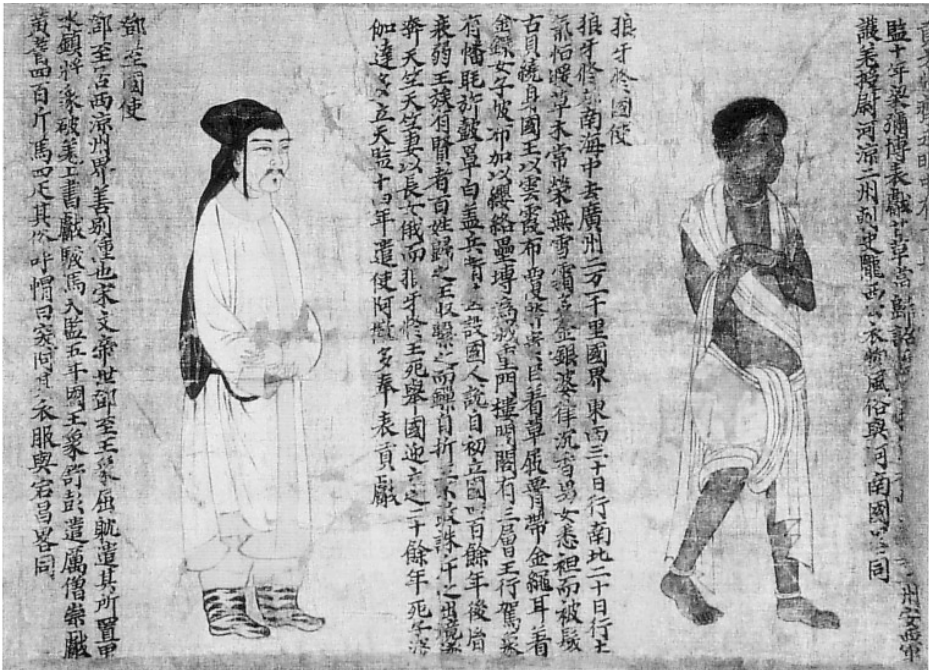 監十年梁彌博表獻甘草當歸詔
護羌挍尉河涼二州刺史隴西公衣物風俗與河南國同
州安西將
狼牙脩國使
狼牙脩在南海中去廣州二万一千里國界東西三十日行南北二十日行土
氣恬暖草木常榮無雪霜多金銀婆律沉香男女悉袒而被髮
古貝繞身國王以雲霞布覆貴臣着草屐帶金繩耳着
金鐶女子披布加以纓絡壘塼為城重門樓門閣有三層王行駕象
有幡眊旂鼓罩白盖兵設國人說自初立國四百餘年後嗣
衰弱王族有賢者百姓歸之王收繫之而鏁自折之出境遂
奔天竺天竺妻以長女俄而狼牙脩王死舉國迎立之二十餘年死子婆
伽達多立天監十四年遣使阿撤多奉表貢獻
鄧至國使
鄧至古西涼州界羌別種也宋文帝世鄧至王象屈躭遣其所置里
水鎮將象破羌上書獻駿馬天監五年國王象舒彭遣厲僧崇獻
黃耆四百斤馬四疋其俗呼帽曰突何其衣服與宕昌畧同